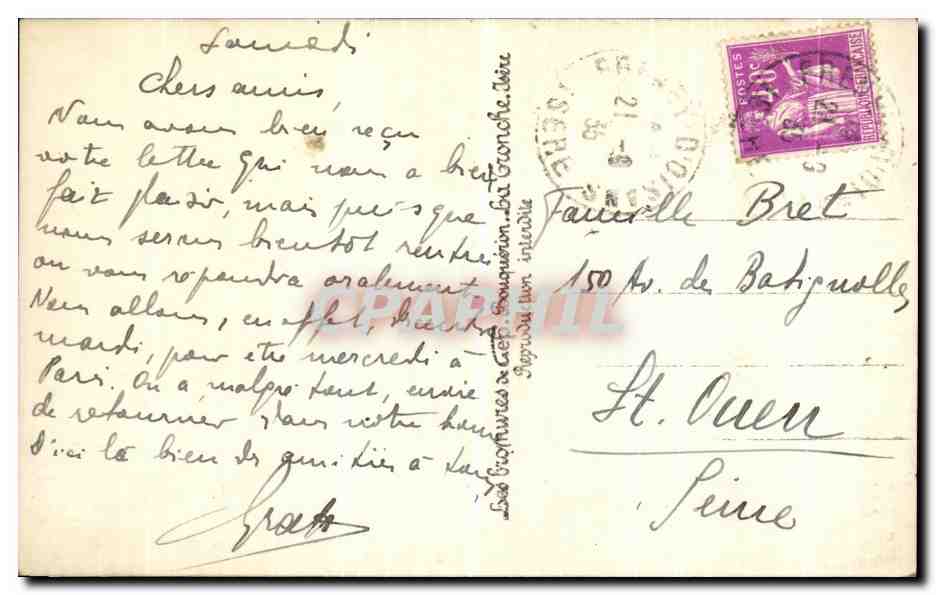 Samedi
Chers amis,
Nous avons bien reçu
votre lettre qui nous a bien
fait plaisir, mais puisque
nous serons bientôt rentrés
on vous répondra oralement
Nous allons, en effet,
mardi, pour être mercredi à
Paris. On a malgré tout, envie
de retourner dans notre
D'ici là bien des amitiés à tous
Les Bromures de Cie P. Bouquerin. La Tronche. Isère
Reproduction interdite
Famille Bret
150 Av. des Batignolles
St. Ouen
Seine
POSTES
40c
REPUBLIQUE FRANÇAISE
D'OISANS
ISERE
21 -8
36
CPARHIL